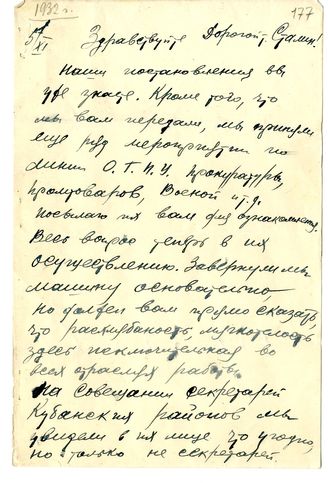 1932 г.
177
5/XI
Здравствуйте Дорогой т. Сталин!
Наши постановления вы
уже знаете. Кроме того, что
мы вам передали, мы приняли
еще ряд мероприятий по
линии О.Г.П.У. прокуратуры,
промтоваров, Военой и т.д.
посылаю их вам для ознакомления.
Весь вопрос теперь в их
осуществлению. Завернули мы
машину основательно,
но должен вам прямо сказать,
что расхлябаность, мягкотелость
здесь исключительная во
всех отраслях работы.
На совещании секретарей
Кубанских районов мы
увидели в их лице что угодно,
но только не секретарей.